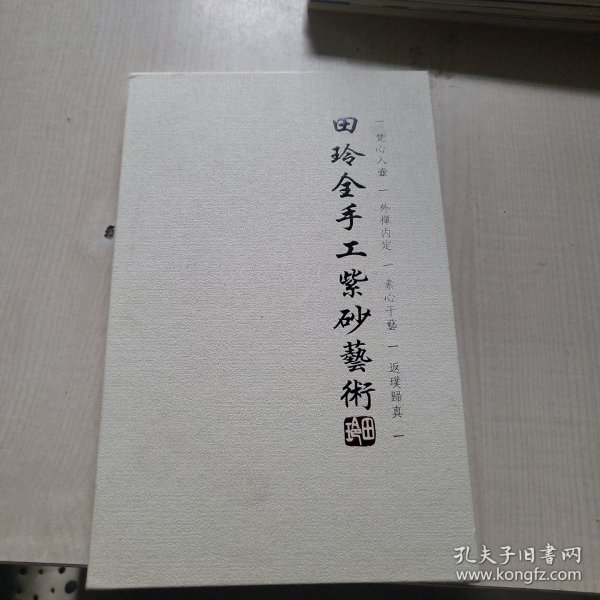 一 梵心入壺 一 外禪内定 一 素心于藝 一 返璞歸真 一
田玲全手工紫砂藝術
田玲
孔夫子旧书网
www.kongfz.com